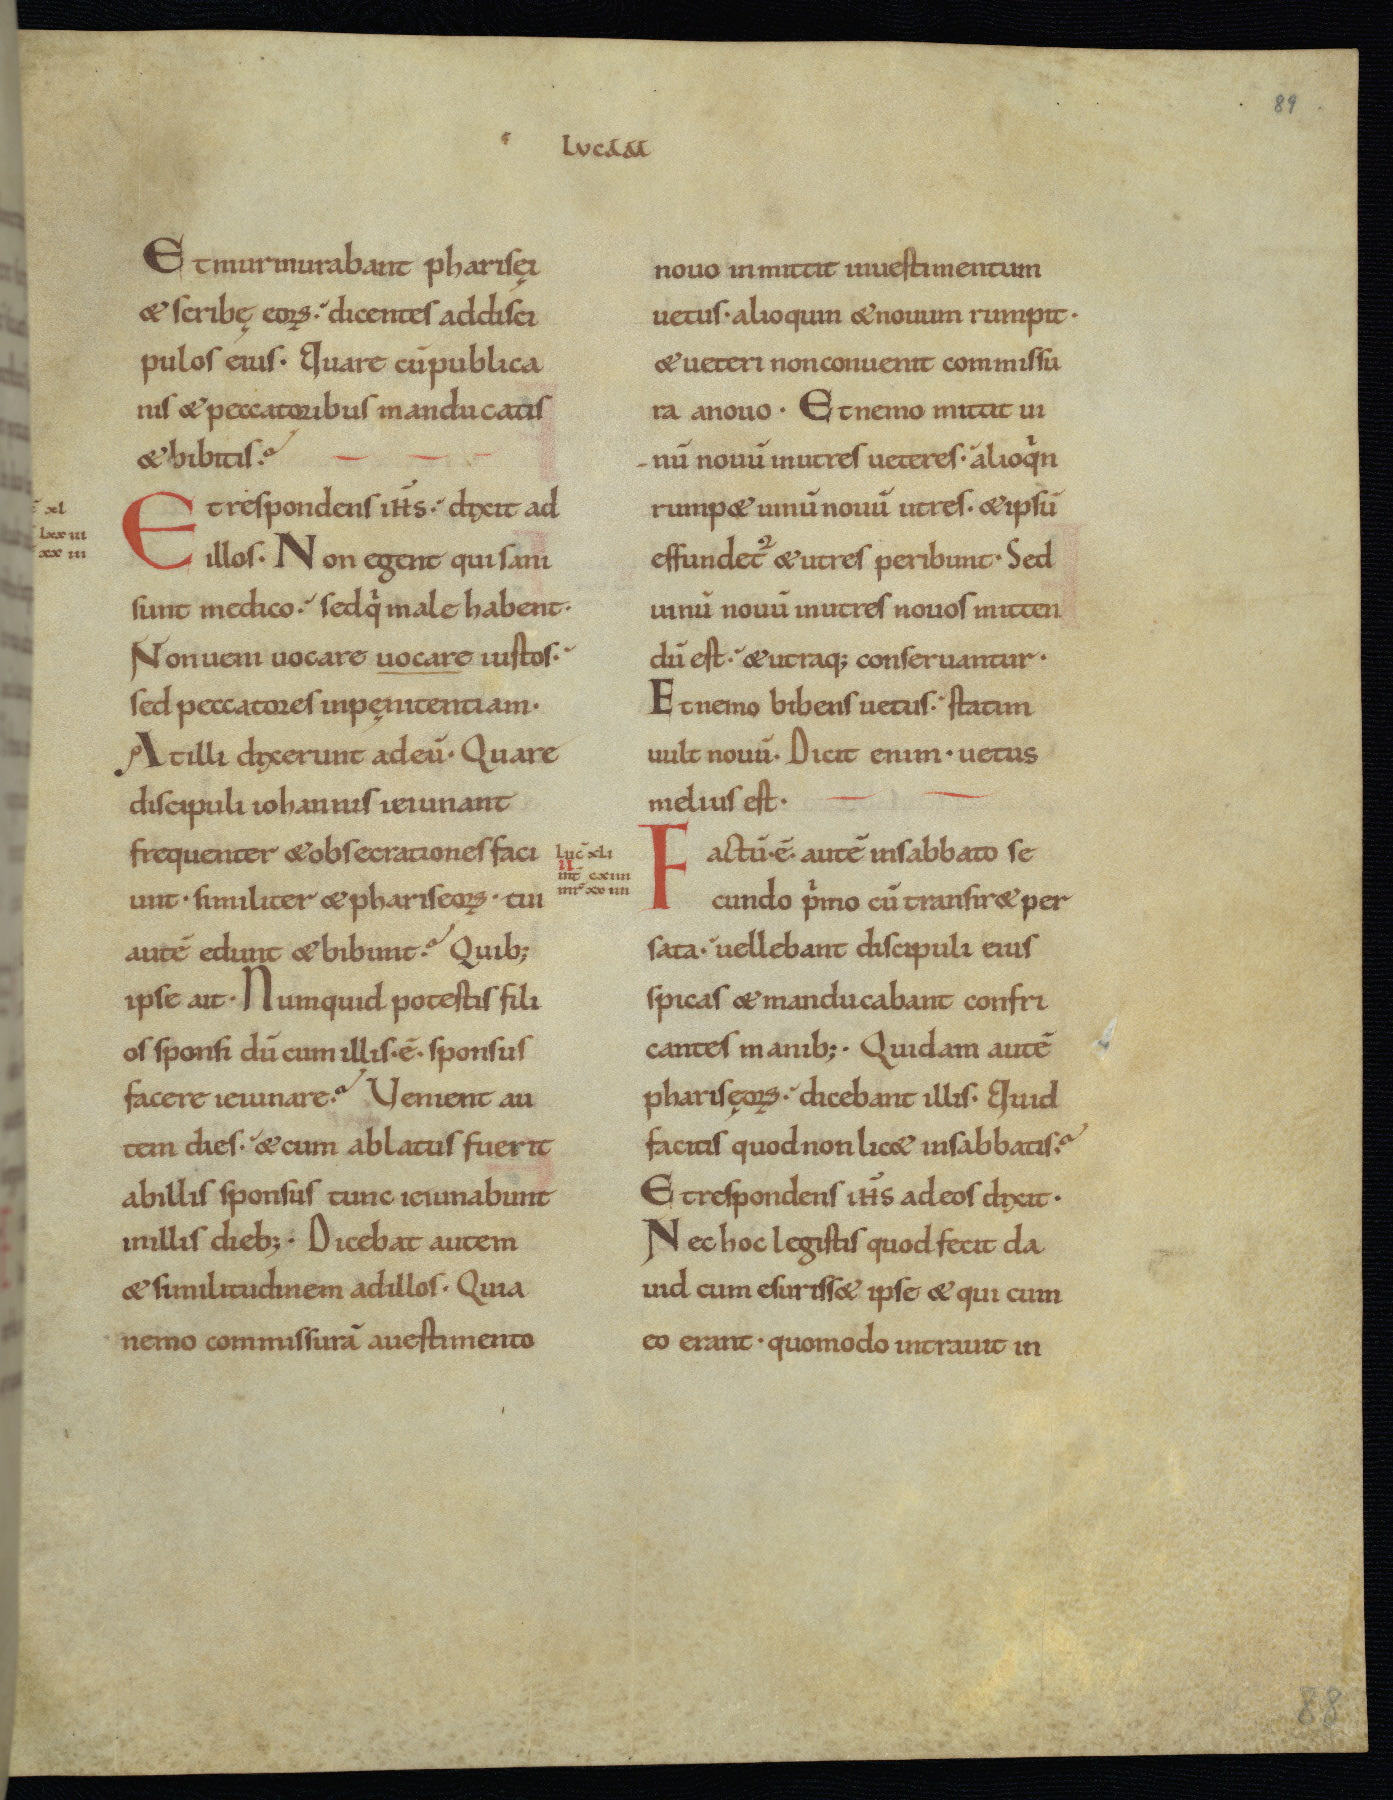 89
LUCAM
Et murmurabant pharisęi
& scribę eorꝝ dicentes ad disci
pulos eius · Quare cū publica
nis & peccatoribus manducatis
& bibitis ?
xl
lxx iii
xx iii
Et respondens ih̄s · dixit ad
illos · Non egent qui sani
sunt medico · sed q̇ male habent ·
Non ueni uocare uocare iustos ·
sed peccatores in pęnitentiam ·
At illi dixerunt ad eū · Quare
discipuli iohannis ieiunant
frequenter & obsecrationes faci
unt · similiter & phariseorꝝ · tui
autē edunt & bibunt ? Quib;
ipse ait · Numquid potestis fili
os sponsi dū cum illis · ē · sponsus
facere ieiunare ? Venient au
tem dies · & cum ablatus fuerit
ab illis sponsus tunc ieiunabunt
in illis dieb; · Dicebat autem
& similitudinem ad illos · Quia
nemo commissurā a uestimento
nouo inmittit in uestimentum
uetus · alioquin & nouum rumpit ·
& ueteri non conuenit commissu
ra a nouo · Et nemo mittit ui
nū nouū in utres ueteres · alioq̇n
rump& uinū nouū utres · & ipsū
effundet᷑ & utres peribunt · Sed
uinū nouū in utres nouos mitten
dū est · & utraq; conseruantur ·
Et nemo bibens uetus · statim
uult nouū · Dicit enim · uetus
melius est ·
luc̄ xli
II
mt̄ cxiiii
mr̄ xxiiii
Factū · ē · autē in sabbato se
cundo p̓mo cū transir& per
sata · uellebant discipuli eius
spicas & manducabant confri
cantes manib; · Quidam autē
pharisęorꝝ · dicebant illis · Quid
facitis quod non lic& in sabbatis ?
Et respondens ih̄s ad eos dixit ·
Nec hoc legistis quod fecit da
uid cum esuriss& ipse & qui cum
eo erant · quomodo intrauit in
88